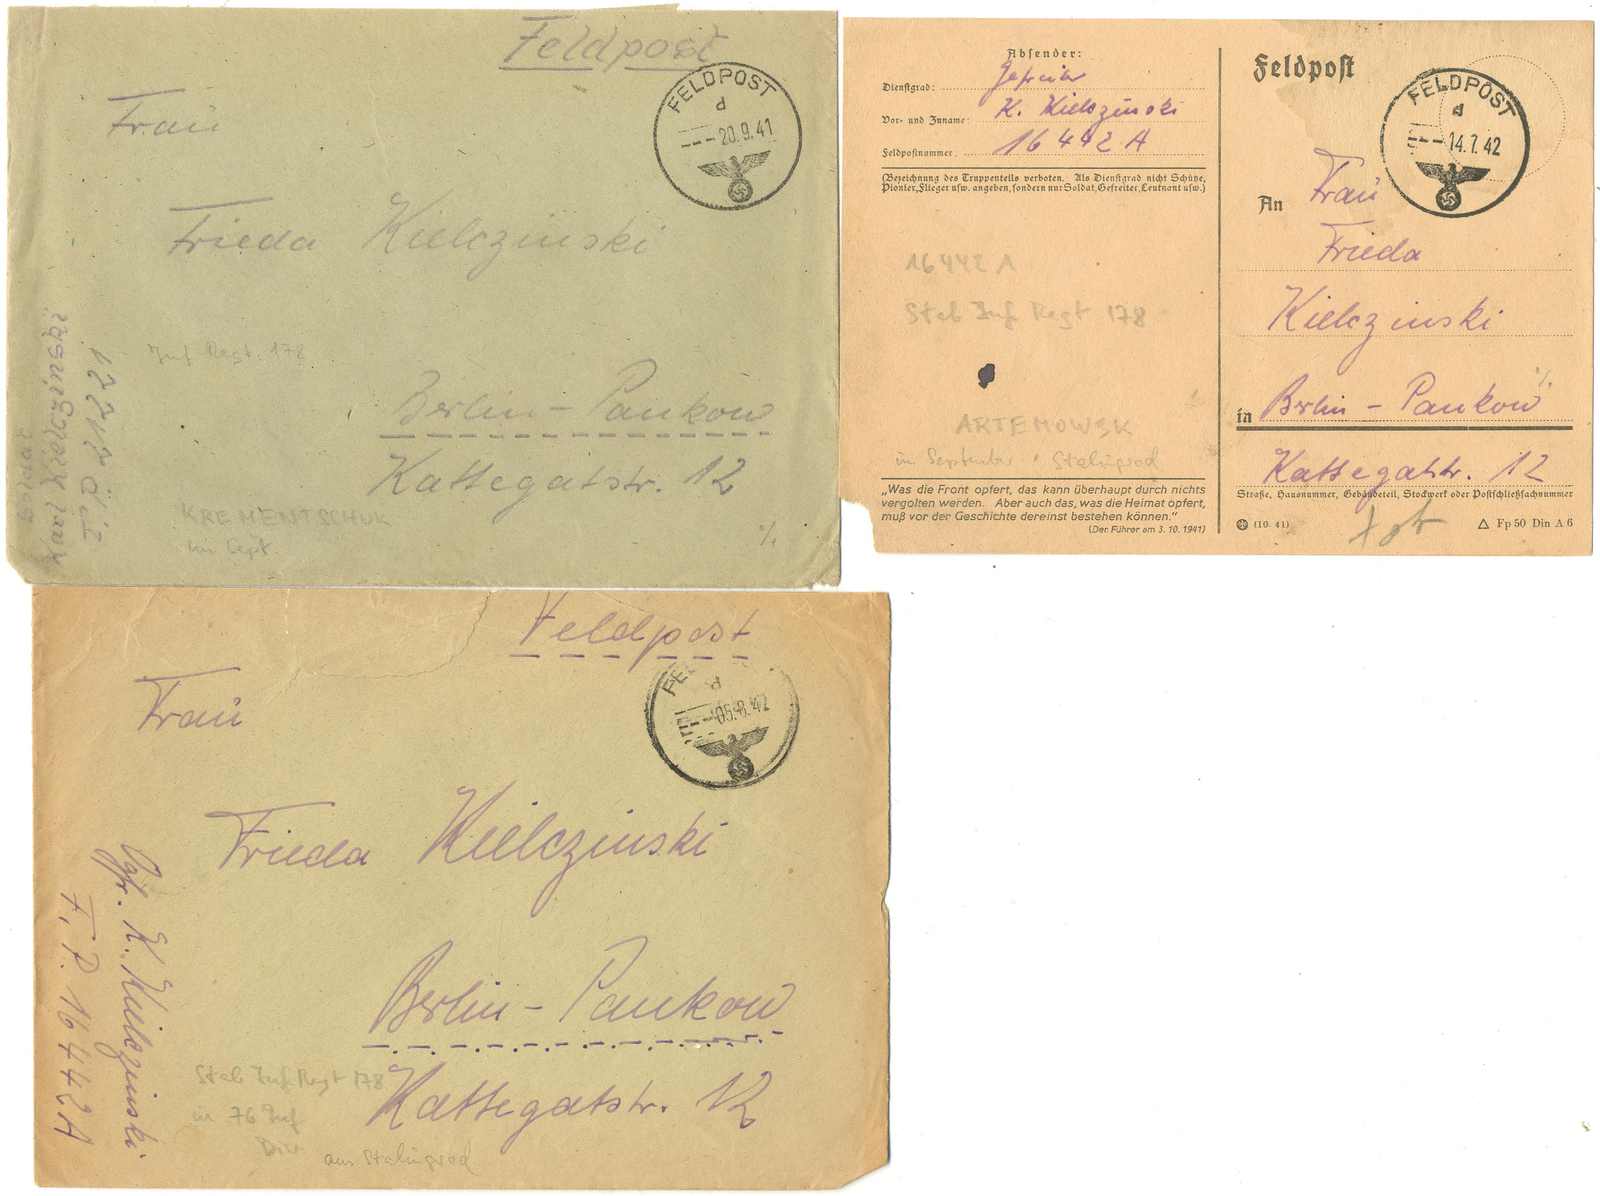 Feldpost
FELDPOST
d
20.9.41
Frau
Frieda Kielczinski
Inf Regt. 178
Berlin-Pankow
Kattegatstr. 12
KREMENTSCHUK
im Sept.
Soldat
Karl Kielczinski
Absender:
Dienstgrad:
Vor- und Zuname: K. Kielczinski
Feldpostnummer: 16442 A
(Bezeichnung des Truppenteils verboten. Als Dienstgrad nicht Schütze,
Pionier, Flieger usw. angeben, sondern nur Soldat, Gefreiter, Leutnant usw.)
16442 A
Stab Inf Regt 178
ARTEMOWSK
im September Stalingrad
„Was die Front opfert, das kann überhaupt durch nichts
vergolten werden. Aber auch das, was die Heimat opfert,
muß vor der Geschichte dereinst bestehen können.“
(Der Führer am 3. 10. 1941)
Feldpost
FELDPOST
d
14.7.42
An Frau
Frieda
Kielczinski
in Berlin-Pankow
Kattegatstr. 12
Straße, Hausnummer, Gebäudeteil, Stockwerk oder Postschließfachnummer
(10. 41)
Fp 50 Din A 6
Feldpost
d
05.8.42
Frau
Frieda Kielczinski
Berlin-Pankow
Kattegatstr. 12
Stab Inf Regt 178
in 76 Inf
Div
aus Stalingrad
Ogfr. K. Kielczinski
F.P. 16442A